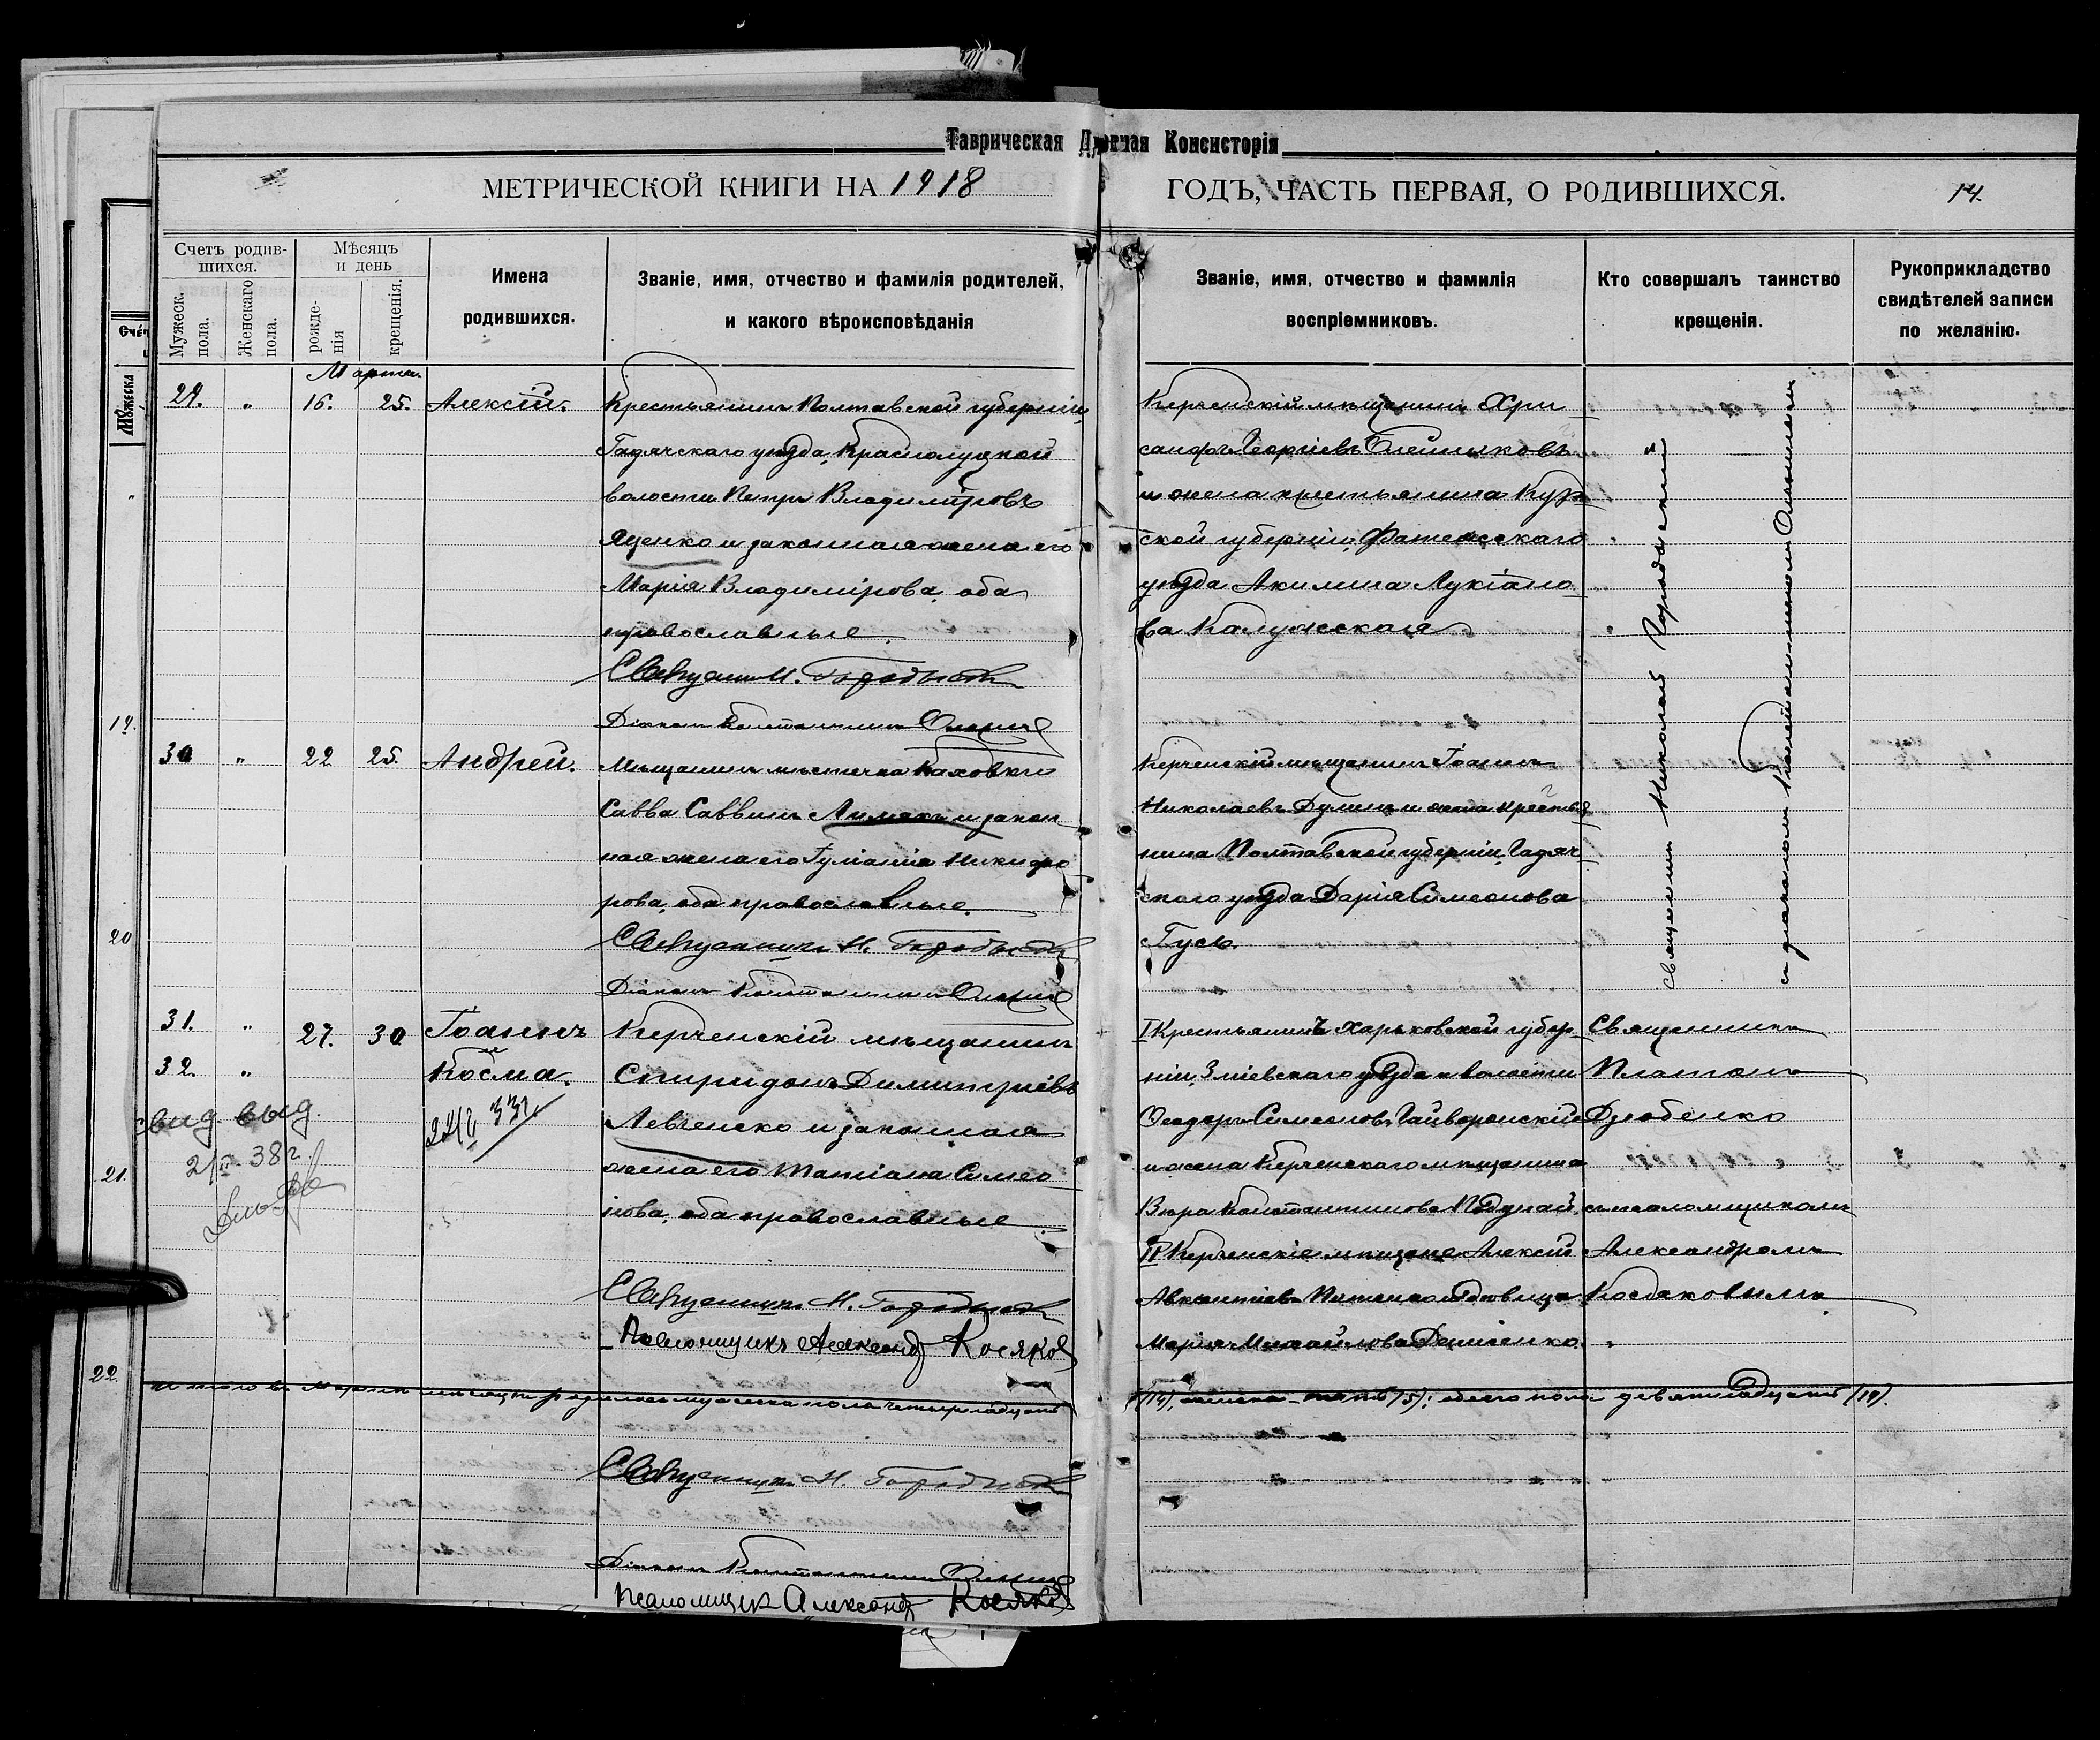 Таврическая Духовная Консисторія
МЕТРИЧЕСКОЙ КНИГИ НА 1918 ГОДЪ, ЧАСТЬ ПЕРВАЯ, О РОДИВШИХСЯ. 14.
Счетъ родив-
шихся.
Мужеск. пола.
Женскаго пола.
Мѣсяцъ
и день
рожде-
нія
крещенія.
Имена
родившихся.
Званіе, имя, отчество и фамилія родителей,
и какого вѣроисповѣданія
Званіе, имя, отчество и фамилія
воспріемниковъ.
Кто совершалъ таинство
крещенія.
Рукоприкладство
свидѣтелей записи
по желанію.
Марта
29. " 16. 25. Алексій.
Крестьянинъ Полтавской губерніи,
Гадячскаго уѣзда, Краснолуцкой
волости Петръ Владиміровъ
Яценко и законная жена его
Марія Владимірова, оба
православные.
Священникъ Н. Городискій
Діаконъ Константинъ
Керченскій мѣщанинъ Хри
санфъ Георгіевъ Олейниковъ
и жена крестьянина Кур
ской губерніи, Фатежскаго
уѣзда Акилина Лукіано
ва Калужская
Священникъ Николай
съ діакономъ Константиномъ
30 " 22 25. Андрей.
Мѣщанинъ мѣстечка Каховки
Савва Саввинъ Лимакъ и закон
ная жена его Гуліанія Никифо
рова, оба православные.
Священникъ Н. Городискій
Діаконъ Константинъ
Керченскій мѣщанинъ Іоаннъ
Николаевъ и жена крестья
нина Полтавской губерніи, Гадяч
скаго уѣзда Дарія Симеонова
Гусь.
31. " 27. 30 Іоаннъ
32. " Косма.
Керченскій мѣщанинъ
Спиридонъ Димитріевъ
Левченско и законная
жена его Татіана Симео
нова, оба православные
Священникъ Н. Городискій
Псаломщикъ Александръ Косяковъ
свид. выд.
21/II 38 г.
I Крестьянинъ Харьковской губер
ніи, Зміевскаго уѣзда и волости
Ѳеодоръ Симеоновъ Гайворонскій
и жена Керченскаго мѣщанина
Вѣра Константинова Подунай.
II Керченскіе мѣщане Алексій
Авксентіевъ и вдовица
Марія Михайлова Денисенко.
Священникъ
Платонъ
Дзюбенко
съ псаломщикомъ
Александромъ
Косяковымъ
Итого въ Мартѣ мѣсяцѣ родилось мужеска пола четырнадцать (14), женска - пять (5); обоего пола девятнадцать (19).
Священникъ Н. Городискій
Діаконъ Константинъ
Псаломщик Александръ Косяковъ
19.
20
21.
22.